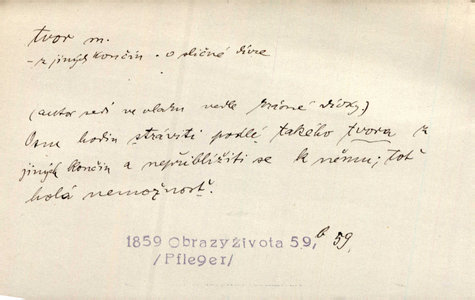 tvor m.
- z jiných končin - o sličné dívce
(autor sedí ve vlaku vedle krásné dívky.)
Osm hodin stráviti podle takého tvora z
jiných končin a nepřiblížiti se k němu; toť
holá nemožnosť.
1859 Obrazy života 59, b 59,
/Pfleger/